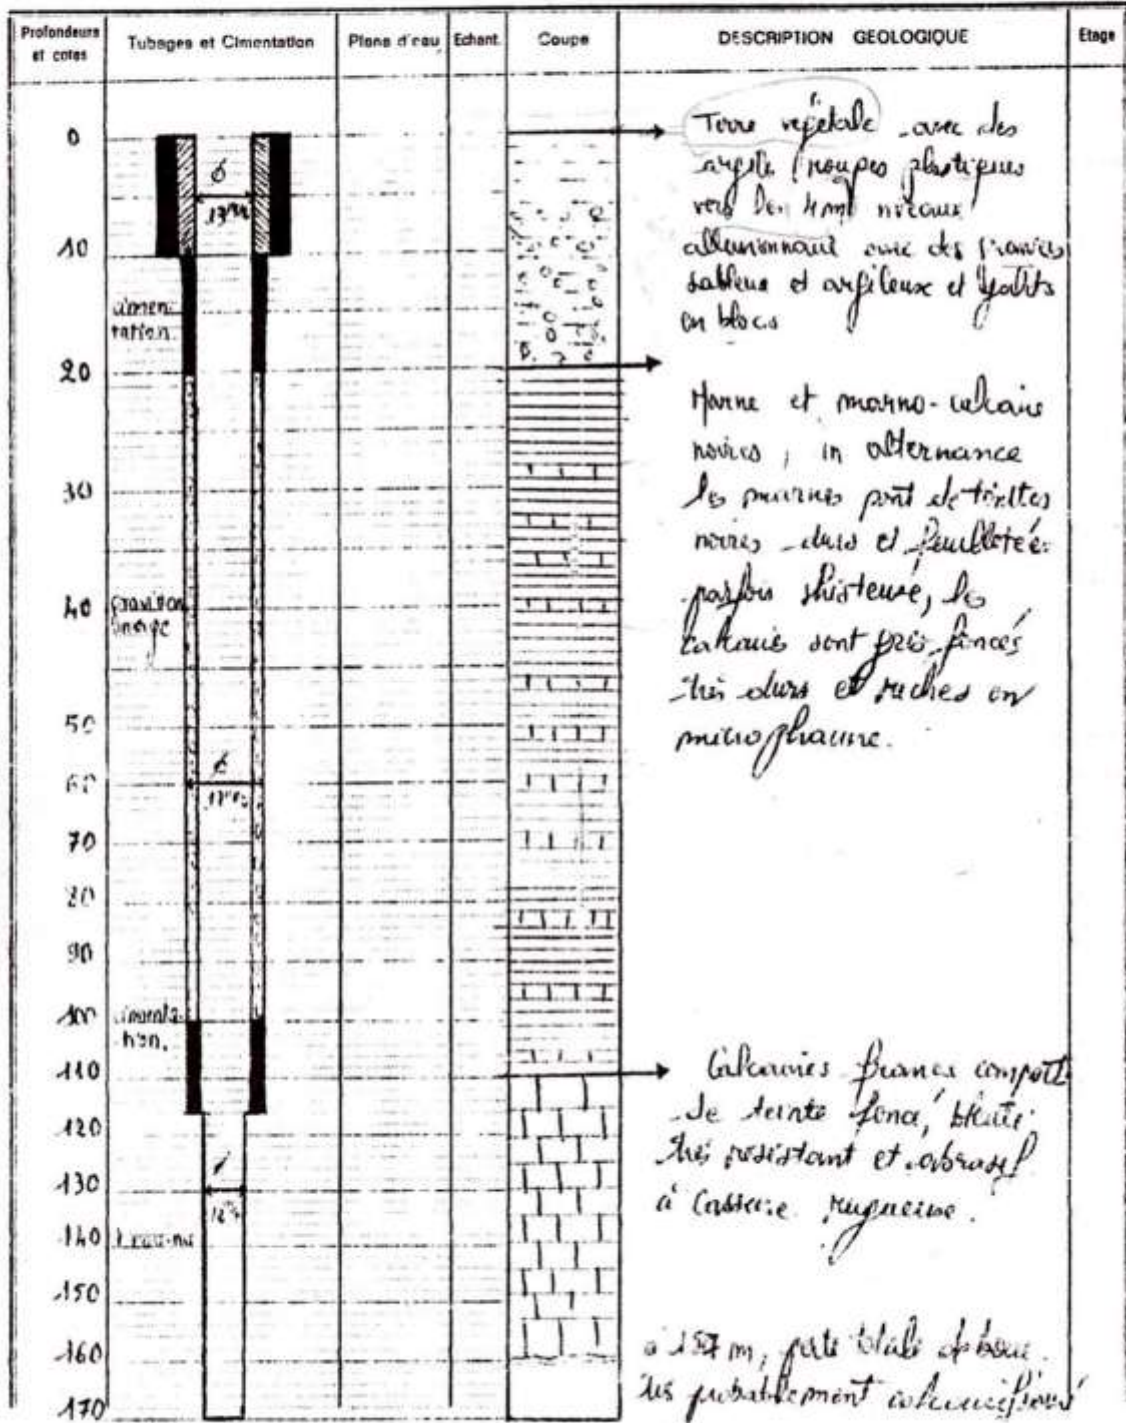 Profondeurs et cotes
Tubages et Cimentation
Plans d'eau
Echant.
Coupe
DESCRIPTION GEOLOGIQUE
Etage
0
10
20
30
40
50
60
70
80
90
100
110
120
130
140
150
160
170
cimen-
tation.
cimenta-
tion.
Terre végétale avec des
argile rouges plastiques
vers les 4m niveaux
avec des
sableux et argileux et galets
en blocs
Marne et marno-calcaire
noires, in alternance
les marnes sont de teintes
noires durs et feuilletée
parfois shisteuse, les
calcaires sont gris foncés
très durs et riches en
microphaune.
Calcaires francs
de teinte foncé,
très resistant et abrasif
à cassure rugueuse.
à 157 m, perte totale de boue.
très probablement